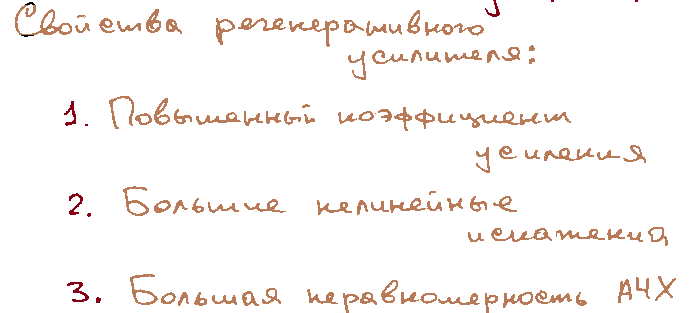 Свойства регенеративного
усилителя:
1. Повышенный коэффициент
усиления
2. Большие нелинейные
искажения
3. Большая неравномерность АЧХ